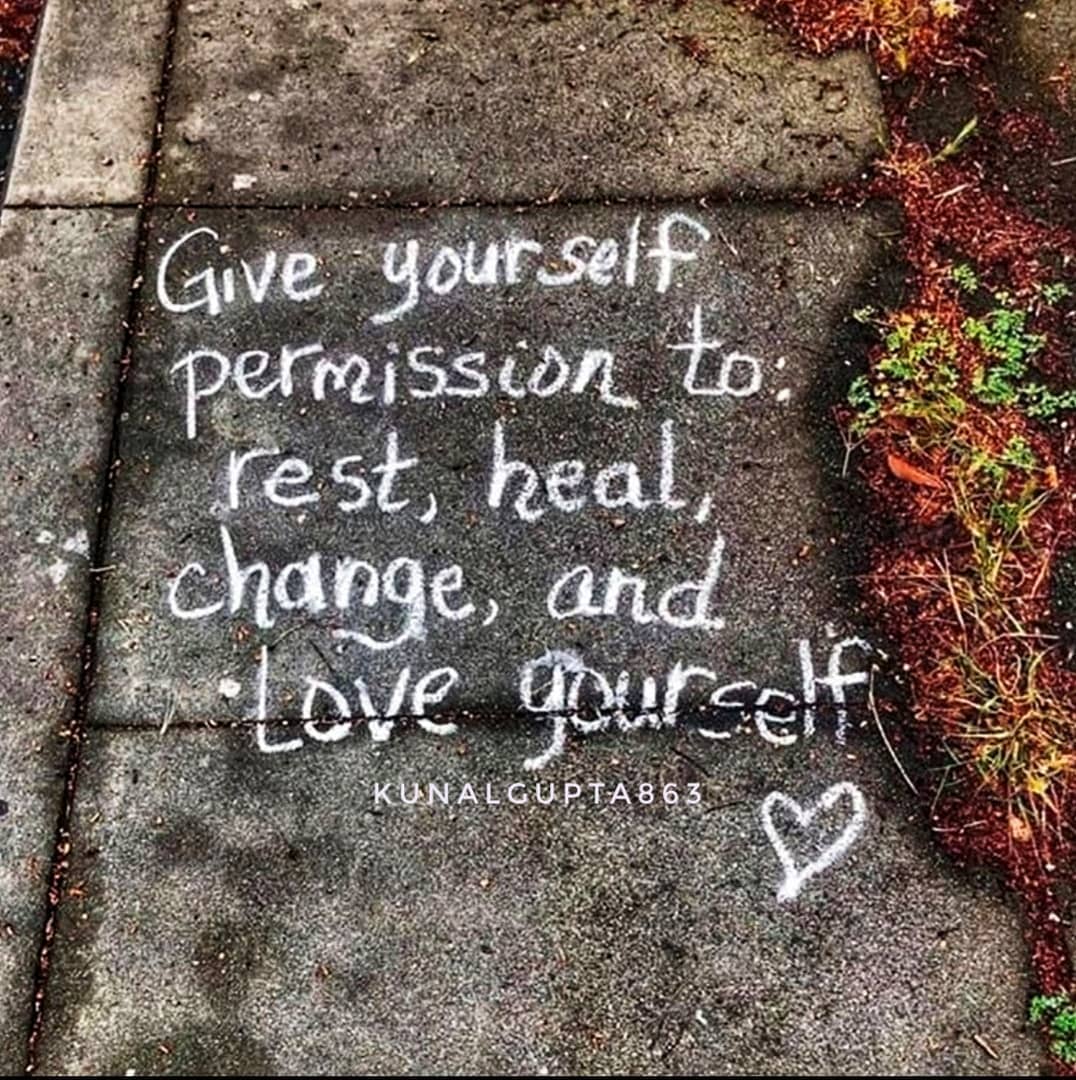 Give yourself
permission to:
rest, heal,
change, and
Love yourself
KUNALGUPTA863